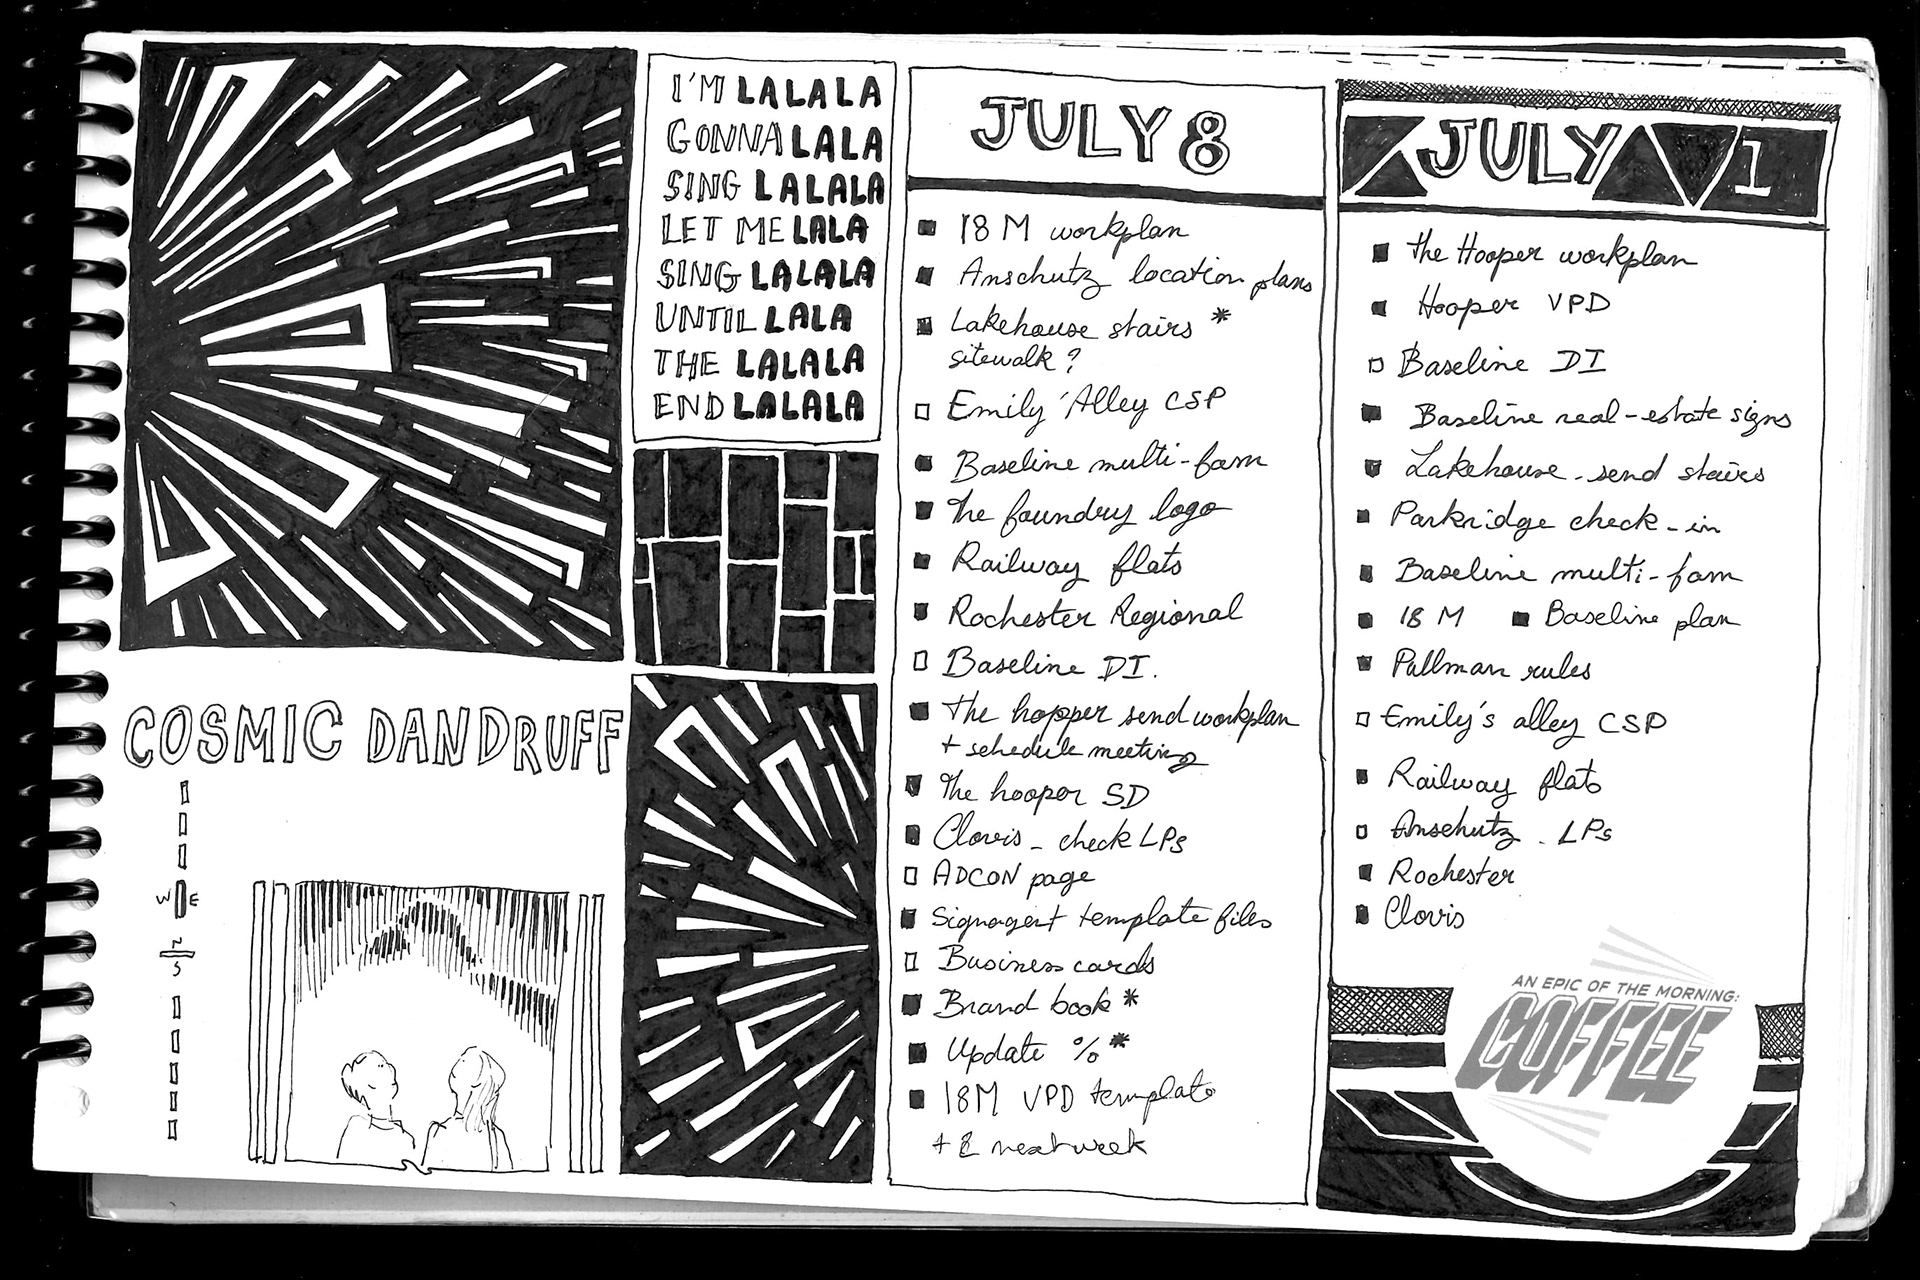 I'M LALALA
GONNA LALA
SING LALALA
LET ME LALA
SING LALALA
UNTIL LALA
THE LALALA
END LALALA
COSMIC DANDRUFF
W E
N
S
JULY 8
18 M workplan
Anschutz location plans
Lakehouse stairs *
sitewalk ?
Emily 'Alley CSP
Baseline multi-fam
The foundry logo
Railway flats
Rochester Regional
Baseline DI.
The hopper send workplan
+ schedule meeting
The hooper SD
Clovis - check LPs
ADCON page
Signagent template files
Business cards
Brand book *
Update % *
18M VPD template
+ 2 next week
JULY 1
The Hooper workplan
Hooper VPD
Baseline DI
Baseline real-estate signs
Lakehouse - send stairs
Parkridge check-in
Baseline multi-fam
18 M Baseline plan
Pullman rules
Emily's alley CSP
Railway flats
Anschutz - LPs
Rochester
Clovis
AN EPIC OF THE MORNING:
COFFEE